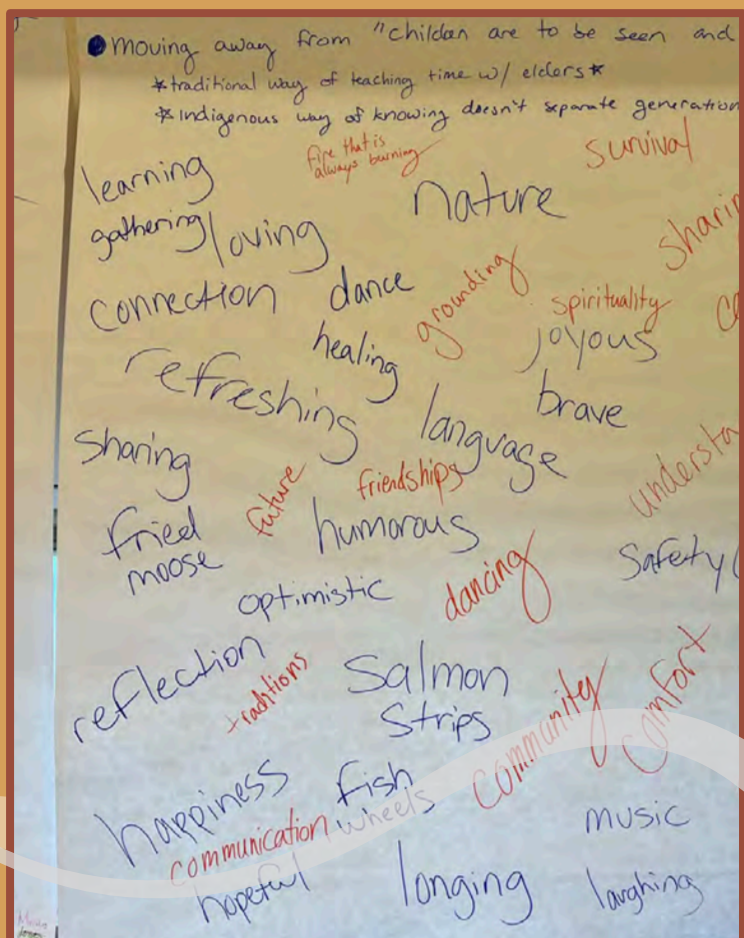 moving away from "childen are to be seen and
*traditional way of teaching time w/ elders*
*Indigenous way of knowing doesn't separate generation
fire that is
always burning
survival
learning
nature
gathering
loving
sharin
connection
dance
grounding
spirituality
joyous
healing
refreshing
brave
language
sharing
understa
future
friendships
fried
moose
humorous
safety
optimistic
dancing
reflection
traditions
salmon
strips
community
comfort
happiness
fish
wheels
communication
music
hopeful
longing
laughing